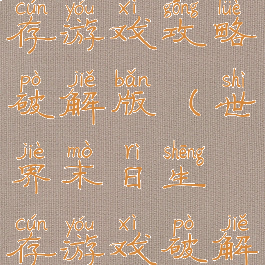 cún yóu xì gōng lüè
存游戏攻略
pò jiě bǎn shì
破解版(世
jiè mò rì shēng
界末日生
cún yóu xì pò jiě
存游戏破解